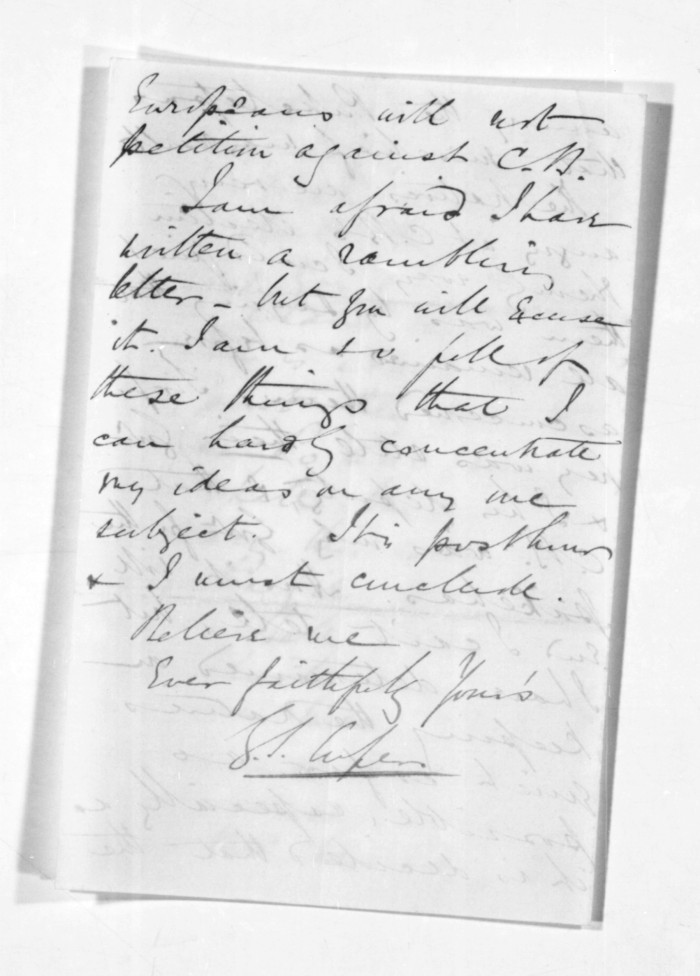 Europeans will not
petition against C.B.
I am afraid I have
written a rambling
letter - but you will Excuse
it. I am so full of
these things that I
can hardly concentrate
my ideas on any one
subject. It is post hour
& I must conclude.
Believe me
Ever faithfully Yours